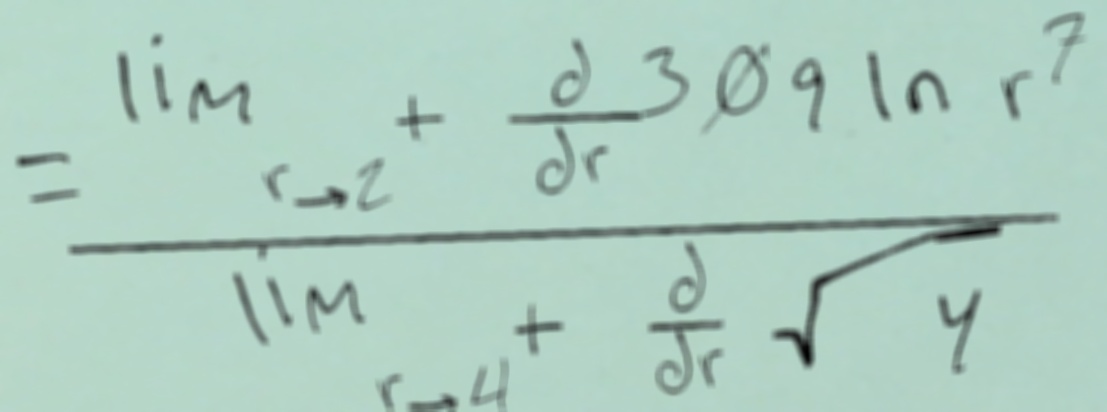 = \frac{\lim_{r \to 2^+} \frac{d}{dr} 309 \ln r^7}{\lim_{r \to 4^+} \frac{d}{dr} \sqrt{y}}